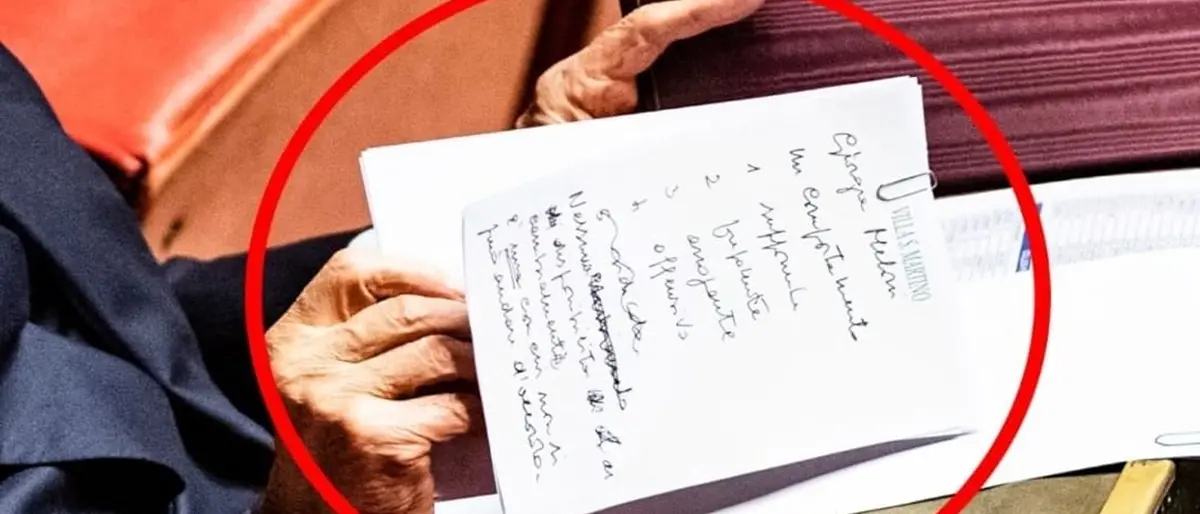 VILLA S. MARTINO
Giorgia Meloni
Un comportamento
1 supponente
2 prepotente
3 arrogante
4 offensivo
Nessuna
disponibilità ai
cambiamenti
è una con cui non si
può andar d'accordo.